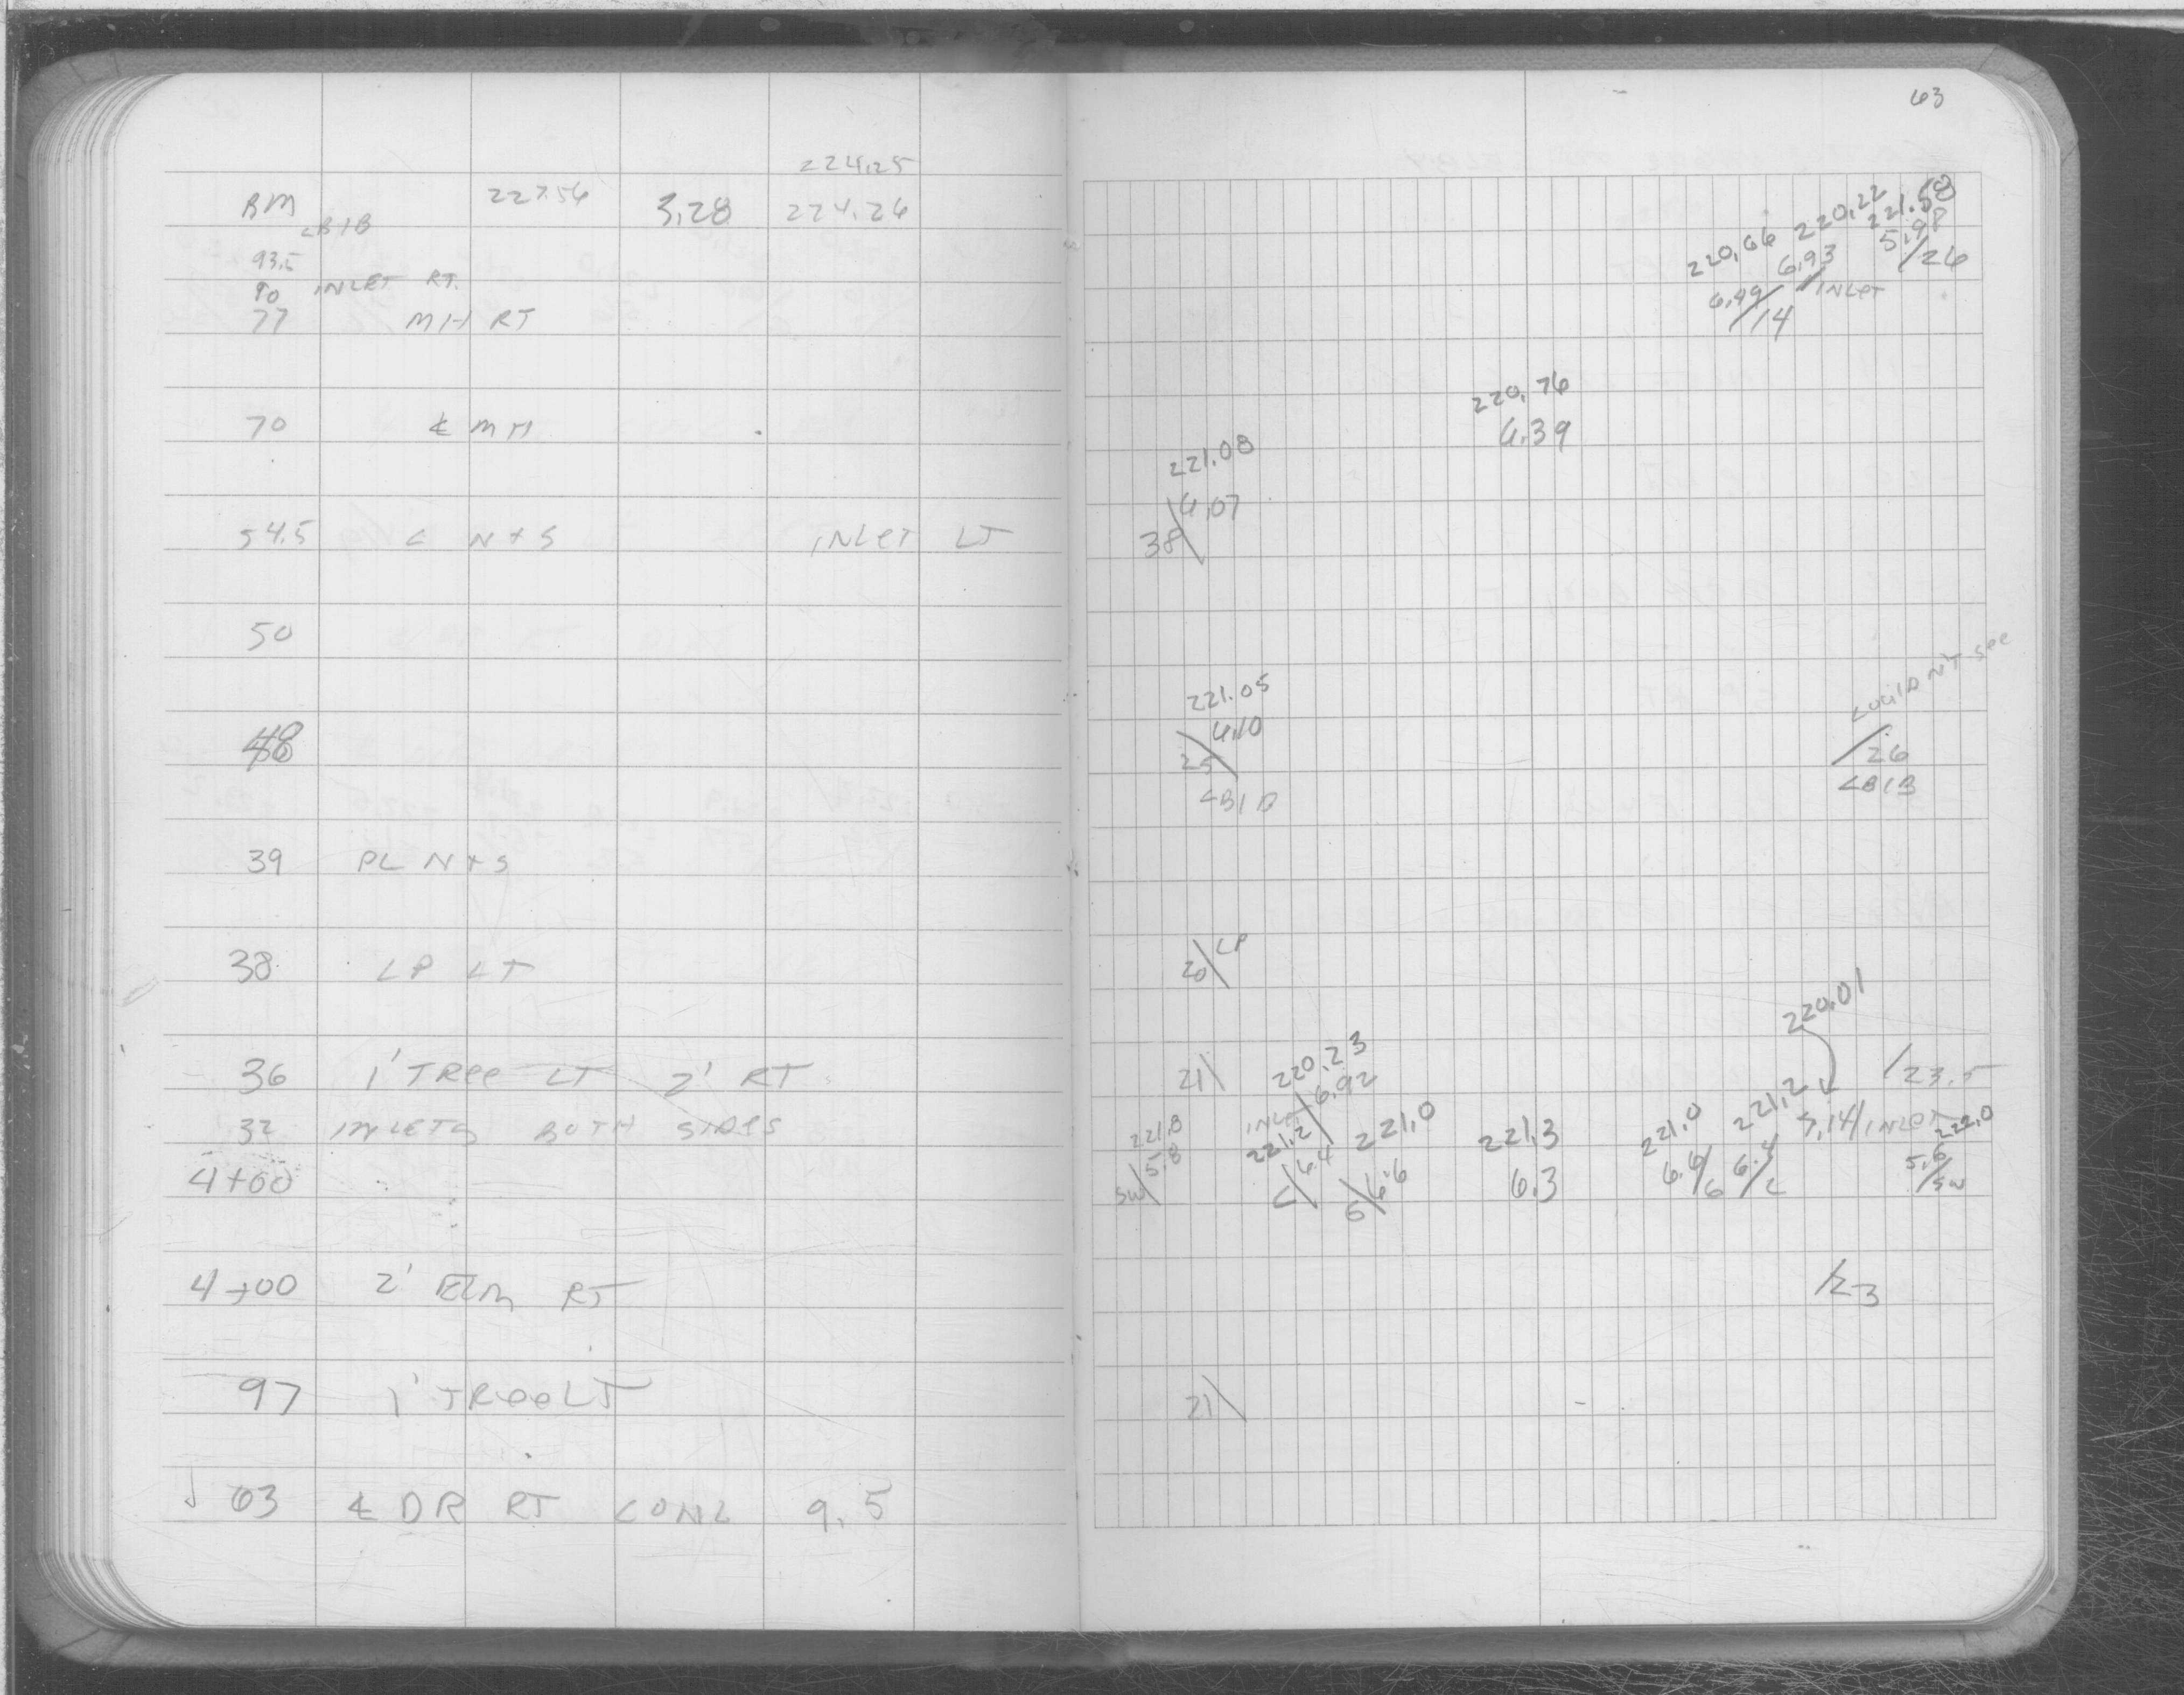 63
224.25
BM 227.54 3.28 224.26
CBIB
93.5
90 INLET RT.
77 MH RT
220.66 220.22 221.58
6.93 5.98
6.49/14 /INLET /26
70 ℄ MH
220.76
6.39
221.08
6.07
38\
54.5 C N+S INLET LT
50
48
221.05
6.10
25\
CBIB
COULDN'T See
/26
CBIB
39 PL N+S
38 LP LT
20\LP
36 1' TRee LT 2' RT
21\
220.23
6.92
INLET\
220.01
/23.5
32 INLETS BOTH SIDES
7.14/INLET
4+00
221.8 221.2 221.0 221.3 221.0 221.2 222.0
SW\5.8 C\6.4 6\6.6 6.3 6.6/6 6.4/C 5.6/SW
4+00 2' ELM RT
/23
97 1' TReeLT
21\
63 ℄ DR RT CONC 9.5